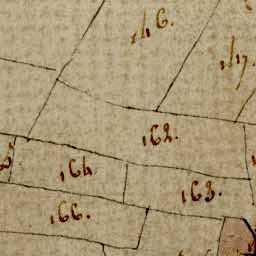 146.
147.
162.
164.
163.
166.